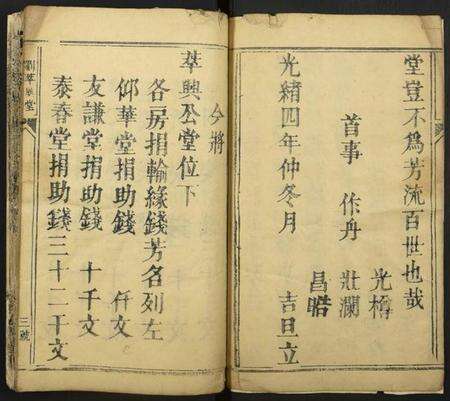 堂豈不爲芳流百世也哉
光樽
首事 作舟 壯瀾
昌晧
光緒四年仲冬月 吉旦立
今將
萃興公堂位下
各房捐輸緣錢芳名列左
仰華堂捐助錢 仟文
友謙堂捐助錢 十千文
泰春堂捐助錢三十二千文